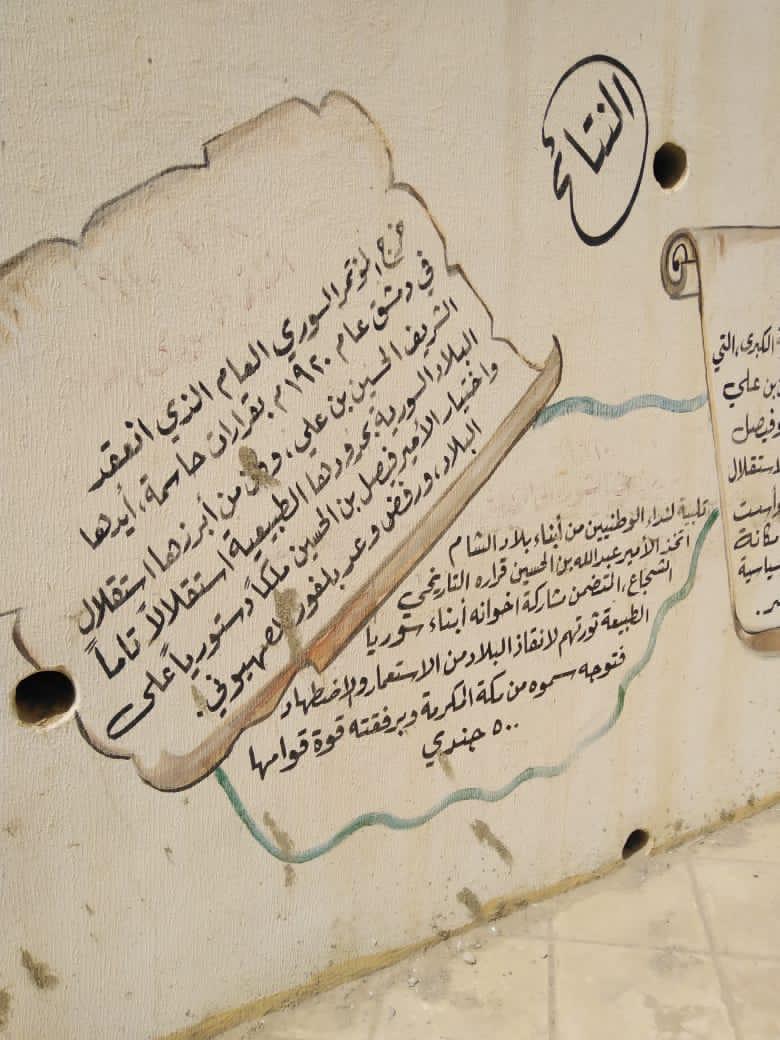 النتائج
خرج المؤتمر السوري العام الذي انعقد
في دمشق عام ١٩٢٠م بقرارات حاسمة، أيدها
الشريف الحسين بن علي، ومن من أبرزها استقلال
البلاد السورية بحدودها الطبيعية استقلالاً تاماً
واختيار الأمير فيصل بن الحسين ملكاً دستورياً على
البلاد، ورفض وعد بلفور الصهيوني.
تلبية لنداء الوطنيين من أبناء بلاد الشام
اتخذ الأمير عبدالله بن الحسين قراره التاريخي
الشجاع، المتضمن مشاركة اخوانه أبناء سوريا
الطبيعة ثورتهم لانقاذ البلاد من الاستعمار والاضطهاد
فتوجه سموه من مكة المكرمة وبرفقته قوة قوامها
٥٠٠ جندي
الكبرى، التي
بن علي
وفيصل
لاستقلال
مكانة
سياسية